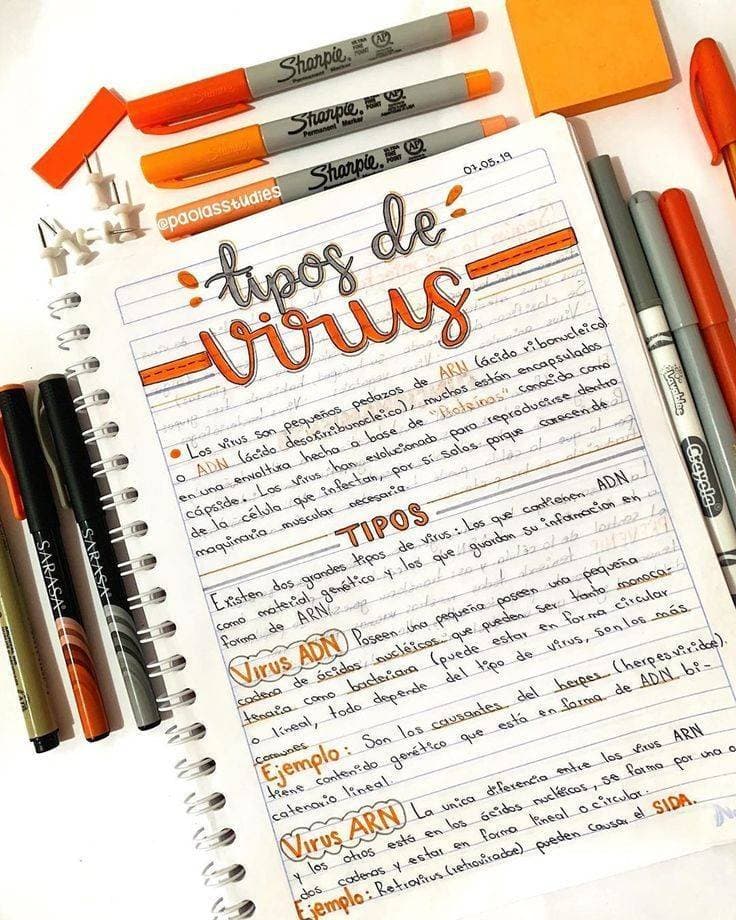 Sharpie
Permanent Marker
ULTRA FINE POINT
AP
Sharpie
Permanent Marker
ULTRA FINE POINT
AP
Sharpie
ULTRA FINE POINT
AP
@paolasstudies
07.05.19
tipos de
virus
• Los virus son pequeños pedazos de ARN (ácido ribonucleico)
o ADN (ácido desoxirribunocleico), muchos están encapsulados
en una envoltura hecha a base de "Proteínas" conocida como
cápside. Los virus han evolucionado para reproducirse dentro
de la célula que infectan, por sí solos porque carecen de
maquinaria muscular necesaria.
TIPOS
Existen dos grandes tipos de virus: Los que contienen ADN
como material genético y los que guardan su informacion en
forma de ARN.
Virus ADN Poseen una pequeña poseen una pequeña
cadena de ácidos nucléicos que pueden ser tanto monoca-
tenaria como bacteriana (puede estar en forma circular
o líneal, todo depende del tipo de virus, son los más
comunes
Ejemplo: Son los causantes del herpes (herpesviridae).
tiene contenido genético que está en forma de ADN bi-
catenario lineal.
Virus ARN La unica diferencia entre los virus ARN
y los otros está en los ácidos nucléicos, se forma por una o
dos cadenas y estar en forma líneal o circular.
Ejemplo: Retrovirus (retroviradae) pueden causar el SIDA.
SARASA
SARASA
Crayola